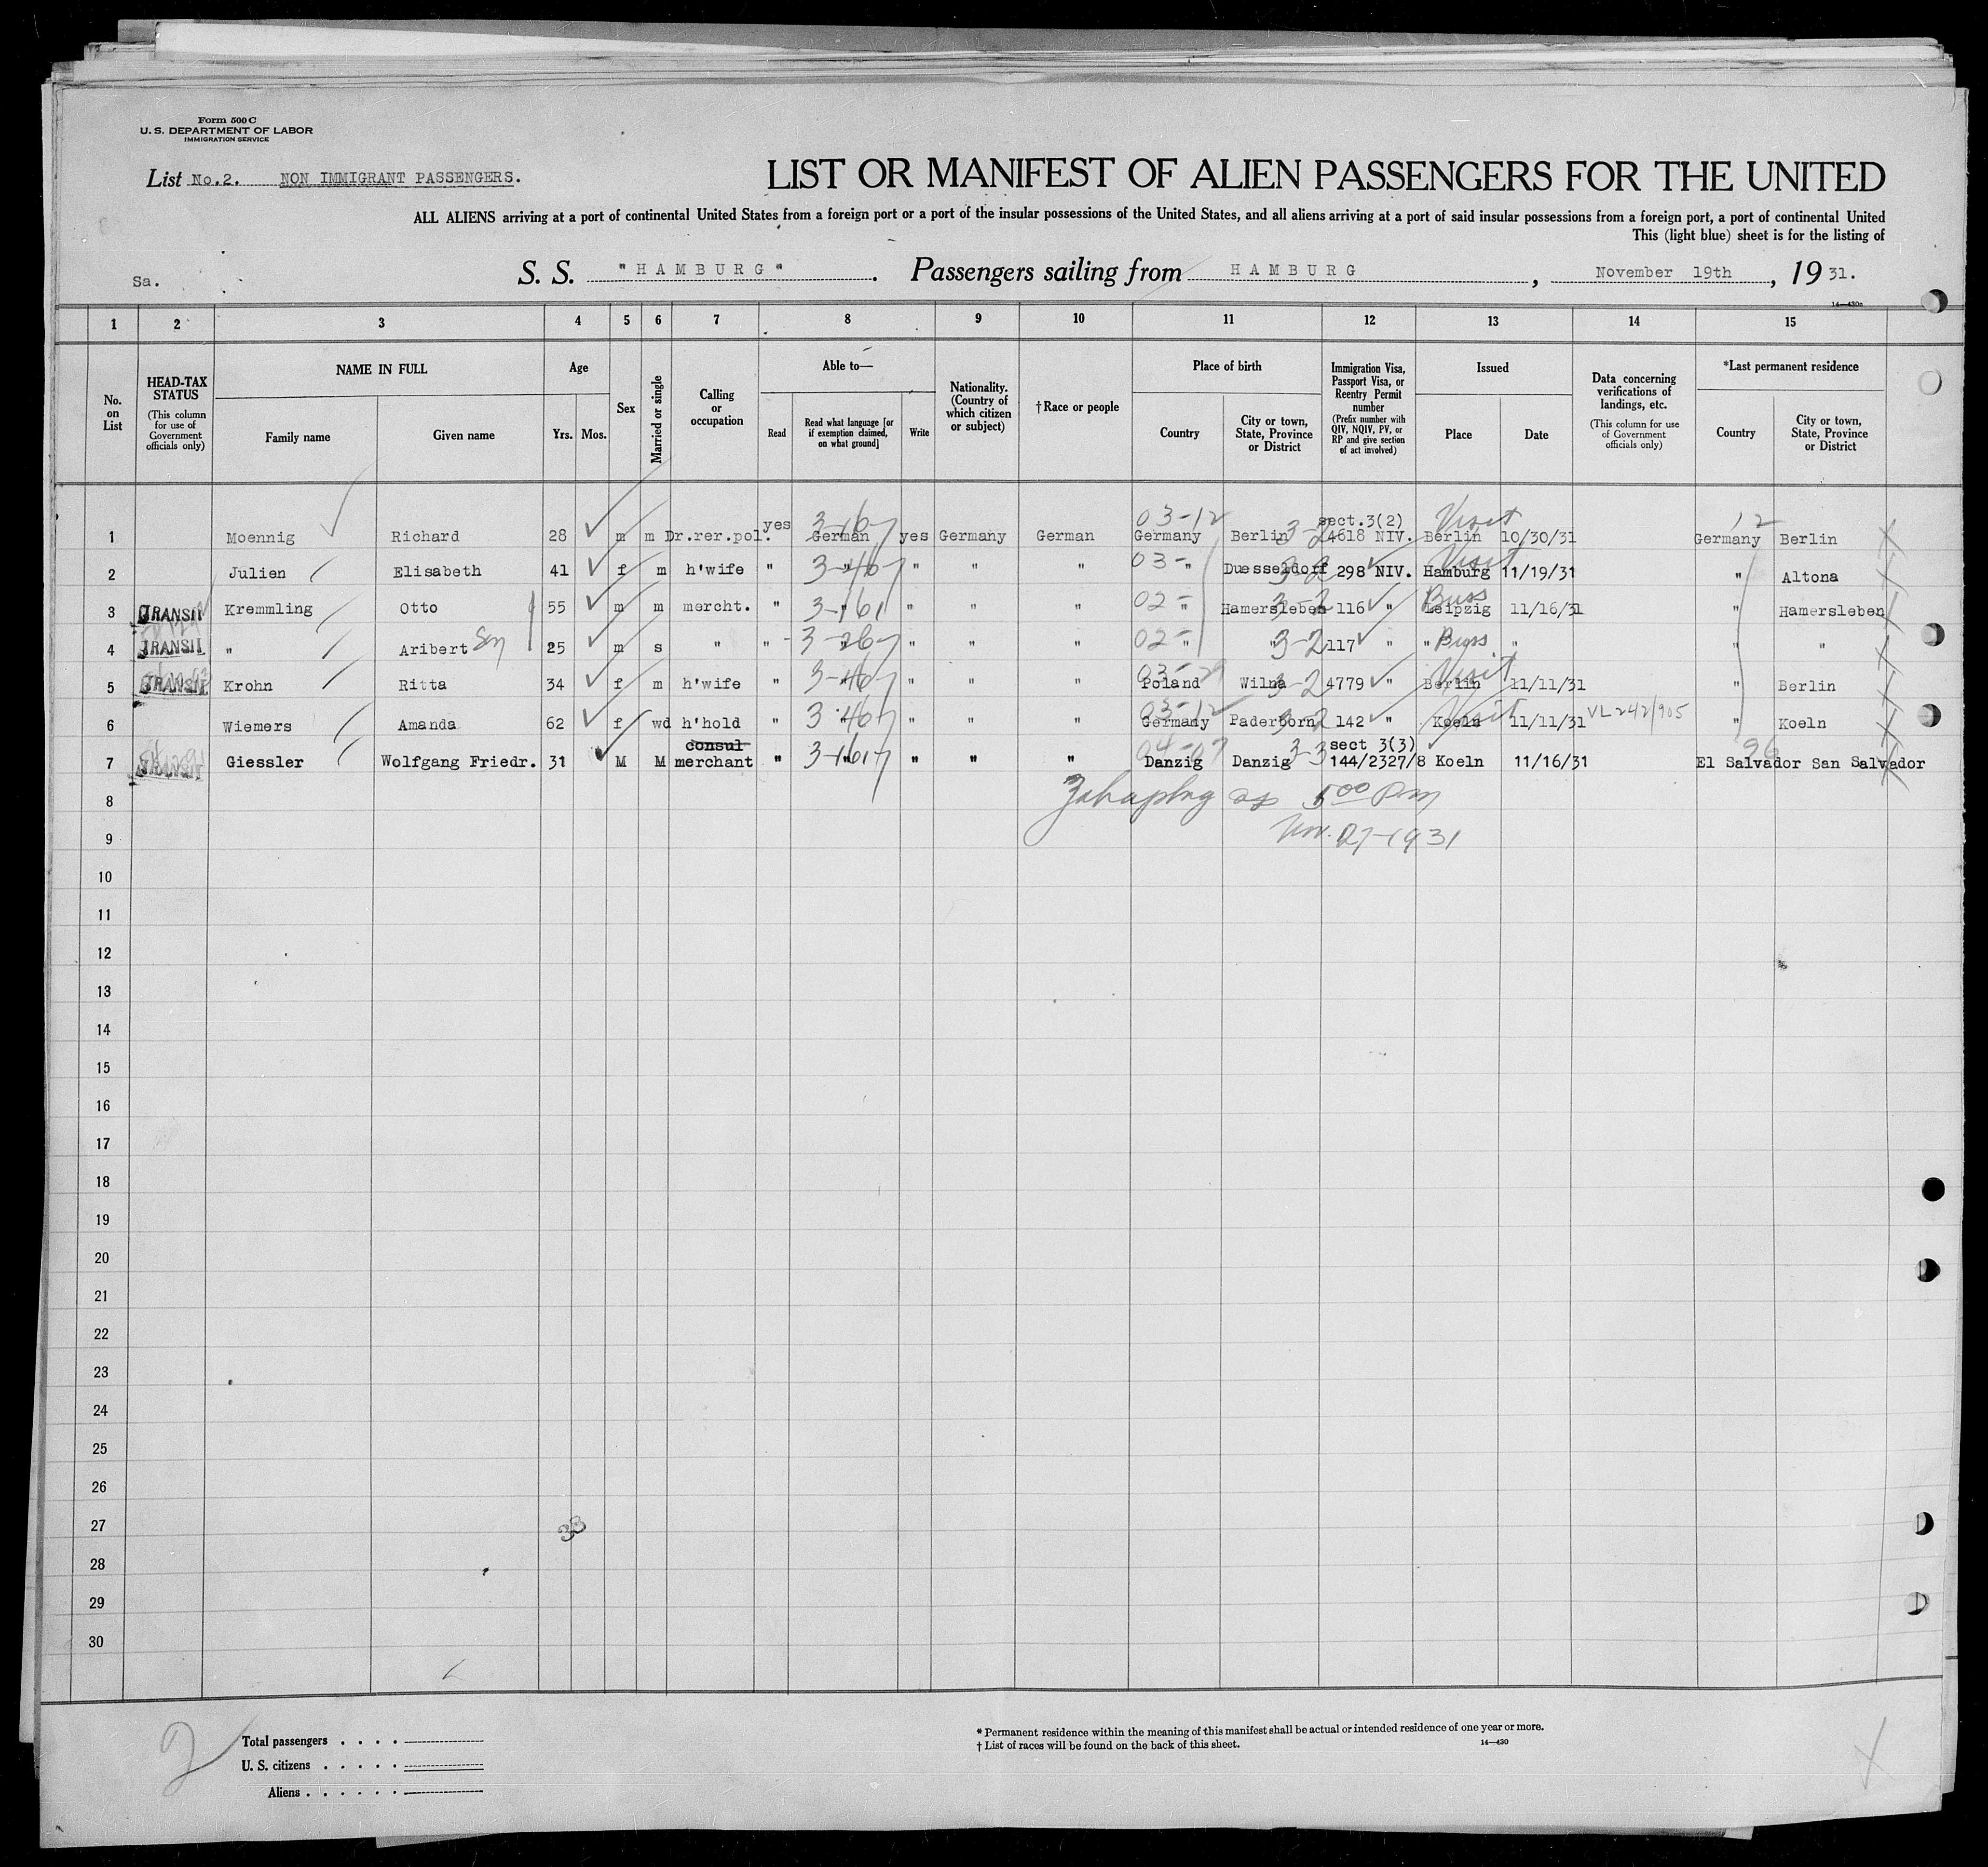 Form 500 C
U. S. DEPARTMENT OF LABOR
IMMIGRATION SERVICE
List No.2. NON IMMIGRANT PASSENGERS.
LIST OR MANIFEST OF ALIEN PASSENGERS FOR THE UNITED
ALL ALIENS arriving at a port of continental United States from a foreign port or a port of the insular possessions of the United States, and all aliens arriving at a port of said insular possessions from a foreign port, a port of continental United
This (light blue) sheet is for the listing of
Sa. S. S. "HAMBURG". Passengers sailing from HAMBURG, November 19th, 1931.
14—430c
1 2 3 4 5 6 7 8 9 10 11 12 13 14 15
No. on List
HEAD-TAX STATUS (This column for use of Government officials only)
NAME IN FULL
Family name Given name
Age
Yrs. Mos.
Sex
Married or single
Calling or occupation
Able to—
Read
Read what language [or if exemption claimed, on what ground]
Write
Nationality. (Country of which citizen or subject)
†Race or people
Place of birth
Country
City or town, State, Province or District
Immigration Visa, Passport Visa, or Reentry Permit number (Prefix number with QIV, NQIV, PV, or RP and give section of act involved)
Issued
Place Date
Data concerning verifications of landings, etc. (This column for use of Government officials only)
*Last permanent residence
Country
City or town, State, Province or District
03-12 sect.3(2) Visit 12
1 Moennig Richard 28 m m Dr.rer.pol. yes German yes Germany German Germany Berlin 3-2 4618 NIV. Berlin 10/30/31 Germany Berlin
2 Julien Elisabeth 41 f m h'wife " " " " " 03- " Duesseldorf 3-2 298 NIV. Visit Hamburg 11/19/31 " Altona
3 TRANSIT Kremmling Otto 55 m m mercht. " " " " " 02- " Hamersleben 3-2 116 " Buss Leipzig 11/16/31 " Hamersleben
4 TRANSIT " Aribert Son 25 m s " " " " " " 02- " " 3-2 117 " " Buss " " "
5 TRANSIT Krohn Ritta 34 f m h'wife " " " " " Poland Wilna 3-2 4779 " Visit Berlin 11/11/31 " Berlin
6 Wiemers Amanda 62 f wd h'hold " " " " " 03-12 Germany Paderborn 3-2 142 " Visit Koeln 11/11/31 VL 242/905 " Koeln
consul sect 3(3) 96
7 TRANSIT Giessler Wolfgang Friedr. 31 M M merchant " " " " " Danzig Danzig 3-3 144/2327/8 Koeln 11/16/31 El Salvador San Salvador
8 5 00 Pm
9 Nov. 27-1931
10
11
12
13
14
15
16
17
18
19
20
21
22
23
24
25
26
27 33
28
29
30
2
Total passengers . . . .
U. S. citizens . . . . .
Aliens . . . . . .
* Permanent residence within the meaning of this manifest shall be actual or intended residence of one year or more.
† List of races will be found on the back of this sheet.
14—430
X